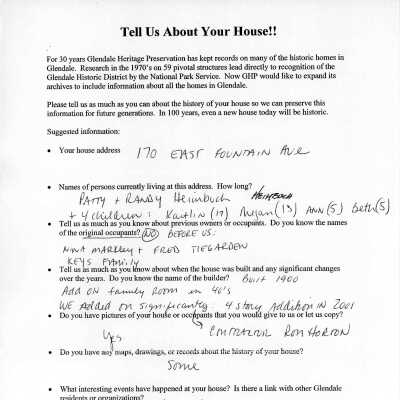 Tell Us About Your House!!
For 30 years Glendale Heritage Preservation has kept records on many of the historic homes in
Glendale. Research in the 1970's on 59 pivotal structures lead directly to recognition of the
Glendale Historic District by the National Park Service. Now GHP would like to expand its
archives to include information about all the homes in Glendale.
Please tell us as much as you can about the history of your house so we can preserve this
information for future generations. In 100 years, even a new house today will be historic.
Suggested information:
• Your house address 170 EAST FOUNTAIN AVE
• Names of persons currently living at this address. How long?
PATTY + RANDY Heimbuch HEIMBUCH
+ 4 children: Kaitlin (17) Megan (13) ANN (5) Beth (5)
• Tell us as much as you know about previous owners or occupants. Do you know the names
of the original occupants? NO BEFORE US:
NINA MARKLEY + FRED TIEGARDEN
KEYS FAMILY
• Tell us as much as you know about when the house was built and any significant changes
over the years. Do you know the name of the builder? Built 1900
Add ON family Room in 40's
WE Added on significantly: 4 story Addition IN 2001
• Do you have pictures of your house or occupants that you would give to us or let us copy?
Yes CONTRACTOR RON HORTON
• Do you have any maps, drawings, or records about the history of your house?
Some
• What interesting events have happened at your house? Is there a link with other Glendale
residents or organizations?